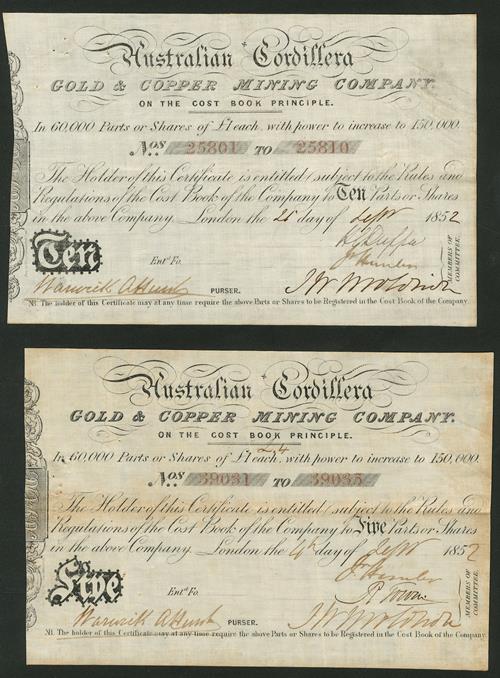 Australian Cordillera
GOLD & COPPER MINING COMPANY.
ON THE COST BOOK PRINCIPLE.
In 60,000 Parts or Shares of £1 each, with power to increase to 150,000.
Nos 25801 TO 25810
The Holder of this Certificate is entitled / subject to the Rules and
Regulations of the Cost Book of the Company to Ten Parts or Shares
in the above Company. London the day of Septr 1852
Ten
Entd. Fo.
MEMBERS OF COMMITTEE.
Warwick A Hunt PURSER.
NB. The holder of this Certificate may at any time require the above Parts or Shares to be Registered in the Cost Book of the Company.
Australian Cordillera
GOLD & COPPER MINING COMPANY.
ON THE COST BOOK PRINCIPLE.
In 60,000 Parts or Shares of £1 each, with power to increase to 150,000.
Nos 39031 TO 39035
The Holder of this Certificate is entitled / subject to the Rules and
Regulations of the Cost Book of the Company to Five Parts or Shares
in the above Company. London the day of Septr 1852
Five
Entd. Fo.
MEMBERS OF COMMITTEE.
Warwick A Hunt PURSER.
NB. The holder of this Certificate may at any time require the above Parts or Shares to be Registered in the Cost Book of the Company.